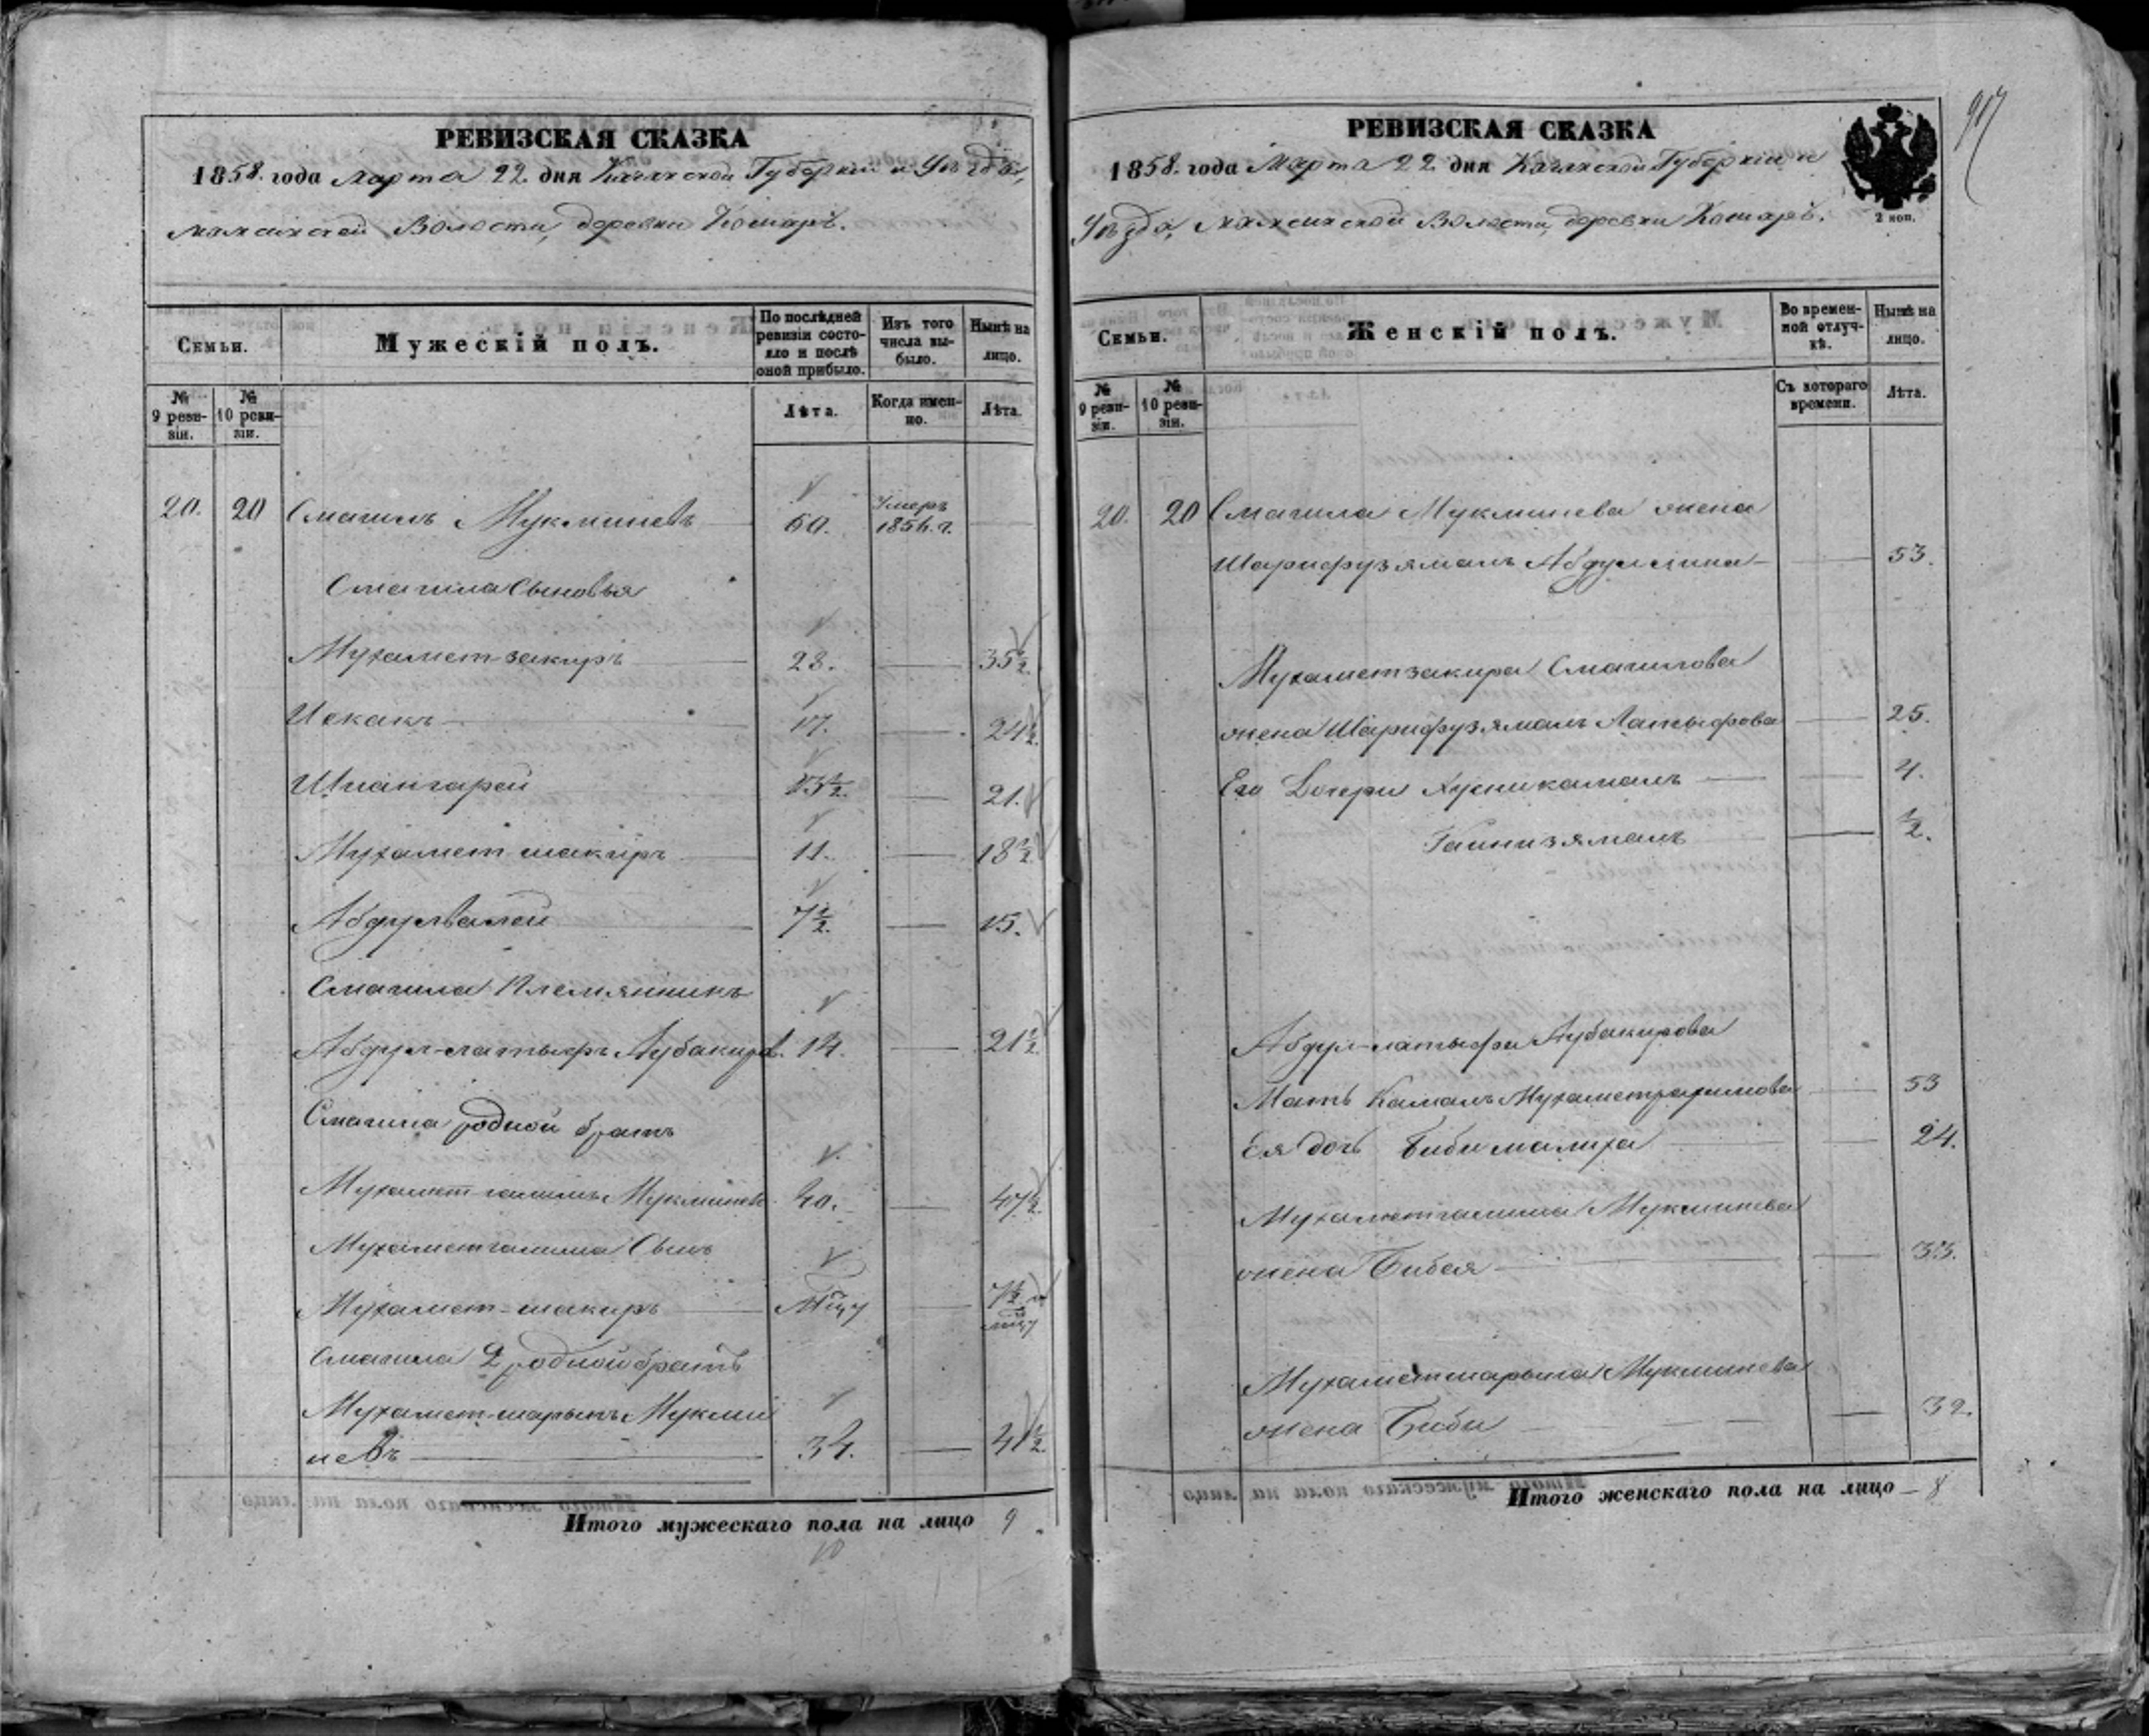 РЕВИЗСКАЯ СКАЗКА
1858. года Марта 22. дня Казанской Губернии и Уѣзда,
Мамсинской Волости, деревни Кошаръ.
Семьи.
Мужескій полъ.
По послѣдней ревизіи состояло и послѣ оной прибыло.
Изъ того числа выбыло.
Нынѣ на лицо.
№ 9 ревизіи.
№ 10 ревизіи.
Лѣта.
Когда именно.
Лѣта.
20. 20 Смагилъ Мукминевъ 60. Умеръ 1856. г.
Смагила Сыновья
Мухамет-закиръ 28. 35 1/2.
Искакъ 17. 24 1/2.
Шиангарей 13 1/2. 21.
Мухамет шакиръ 11. 18 1/2
Абдулвалей 7 1/2. 15.
Смагила Племянникъ
Абдул-латыфъ Аубакиров. 14. 21 1/2
Смагила родной братъ
Мухамет-галимъ Мукминев 40. 47 1/2.
Мухаметгалима Сынъ
Мухамет-шакиръ Мцу 7 1/2 мцу
Смагила 2 родной братъ
Мухамет-шарыпъ Мукми
невъ 34. 41 1/2.
Итого мужескаго пола на лицо 9.
10
917
РЕВИЗСКАЯ СКАЗКА
2 коп.
1858. года Марта 22 дня Казанской Губерніи и
Уѣзда, Мамсинской Волости, деревни Кошаръ.
Семьи.
Женскій полъ.
Во временной отлучкѣ.
Нынѣ на лицо.
№ 9 ревизіи.
№ 10 ревизіи.
Съ котораго времени.
Лѣта.
20. 20 Смагила Мукминева жена
Шарифузямалъ Абдуллина 53.
Мухаметзакира Смагилова
жена Шарифузямалъ Латыфова 25.
Его Дочери Хусникамалъ 4.
Гайнизямалъ 1/2.
Абдул-латыфа Аубакирова
Мать Камалъ Мухаметрахимова 53
Ея дочь Бибималиха 24.
Мухаметгалима Мукминева
жена Бибея 33.
Мухаметшарыпа Мукминева
жена Биби 32.
Итого женскаго пола на лицо 8